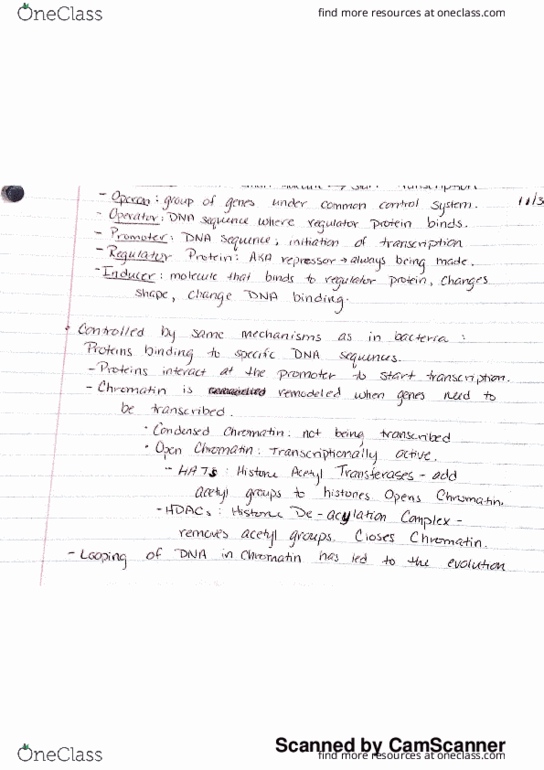 OneClass
find more resources at oneclass.com
transcription
- Operon: group of genes under common control system. 11/3
- Operator: DNA sequence where regulator protein binds.
- Promoter: DNA sequence, initiation of transcription
- Regulator Protein: AKA repressor → always being made.
- Inducer: molecule that binds to regulator protein, changes
shape, change DNA binding.
• Controlled by same mechanisms as in bacteria:
Proteins binding to specific DNA sequences.
- Proteins interact at the promoter to start transcription.
- Chromatin is remodeled when genes need to
be transcribed.
• Condensed Chromatin: not being transcribed
• Open Chromatin: transcriptionally active.
- HATs: Histone Acetyl Transterases - add
acetyl groups to histones Opens Chromatin.
- HDACs: Histone De-acylation Complex -
removes acetyl groups. Closes Chromatin.
- Looping of DNA in Chromatin has led to the evolution
Scanned by CamScanner
OneClass
find more resources at oneclass.com